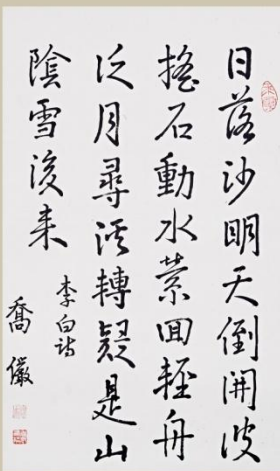 日落沙明天倒開波
搖石動水縈回輕舟
泛月尋溪轉疑是山
陰雪後来
李白詩
喬儼